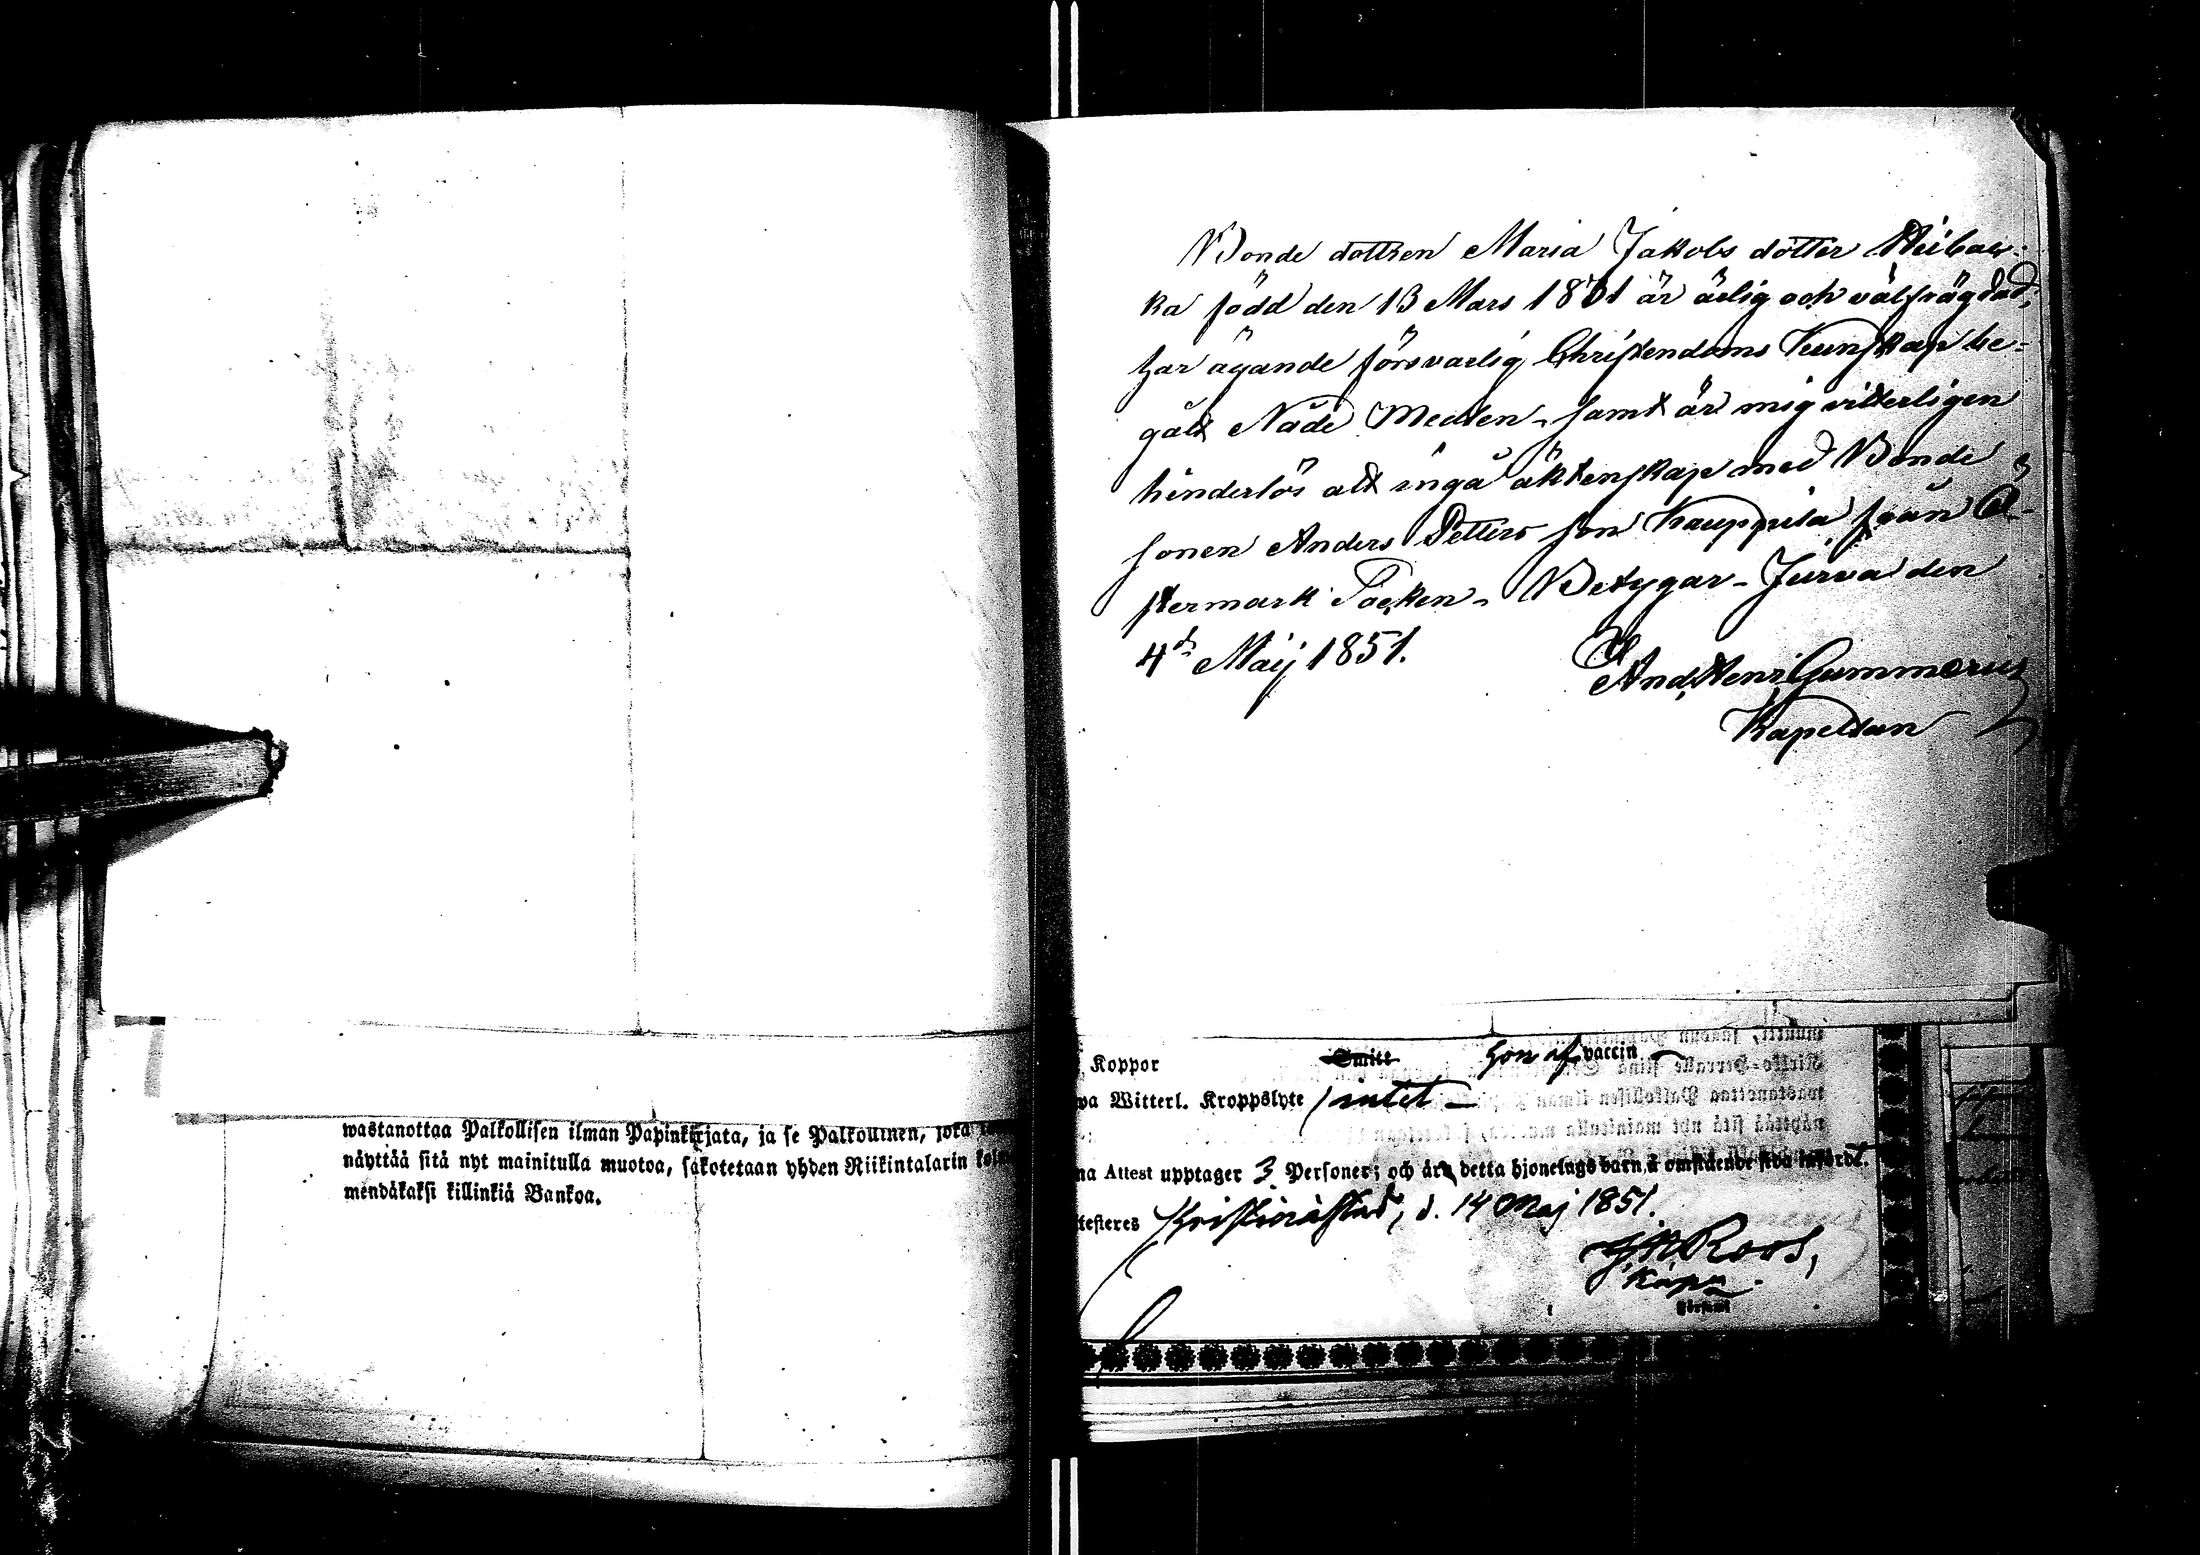 wastanottaa Palkollisen ilman Papinkirjata, ja se Palkollinen, joka
näyttää sitä nyt mainitulla muotoa, sakotetaan yhden Riikintalarin
mendäkaksi killinkiä Bankoa.
Bonde dottren Maria Jakobs dotter
ka född den 13 Mars 1831 är ärlig och välfrägdad,
har ägande försvarlig Christendoms Kunskap be-
gått Nåde Medlen, samt är mig vitterligen
hinderlös att ingå äktenskap med Bonde
sonen Anders Petters son Kauppila från Ö-
stermark Socken, Betygar, Jurva den
4de Maij 1851.
And. Henr. Gummerus
Kapellan
Koppor Smitt gon af vaccin
wa Witterl. Kroppslyte intet
na Attest upptager 3 Personer; och äro detta hjonelags barn å omstående sida införde.
testeres Kristinæstad, d. 14 Maj 1851.
Roos,
Kapn